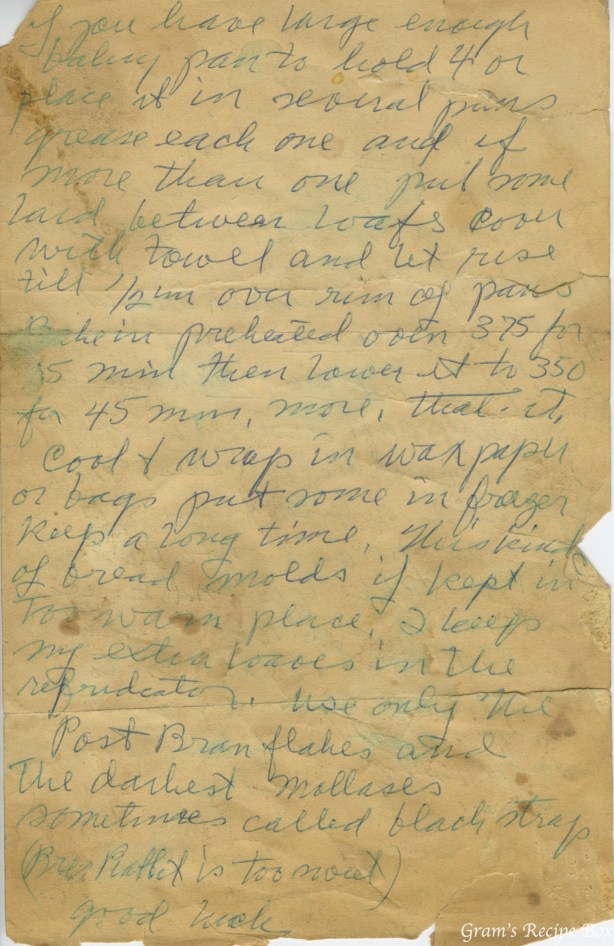 If you have large enough
baking pan to hold 4 or
place it in several pans
grease each one and if
more than one put some
lard between loafs cover
with towel and let rise
till 1/2 in over rim of pans
Bake in preheated oven 375 for
15 min then lower it to 350
for 45 min, more, that it,
cool & wrap in wax paper
or bags put some in frezer
keep a long time, this kind
of bread molds if kept in
too warm place, I keep
my extra loaves in the
refridicator. Use only the
Post Bran flakes and
The darkest mollases
sometimes called black strap
(Brer Rabbit is too sweet)
good luck
Gram's Recipe Box